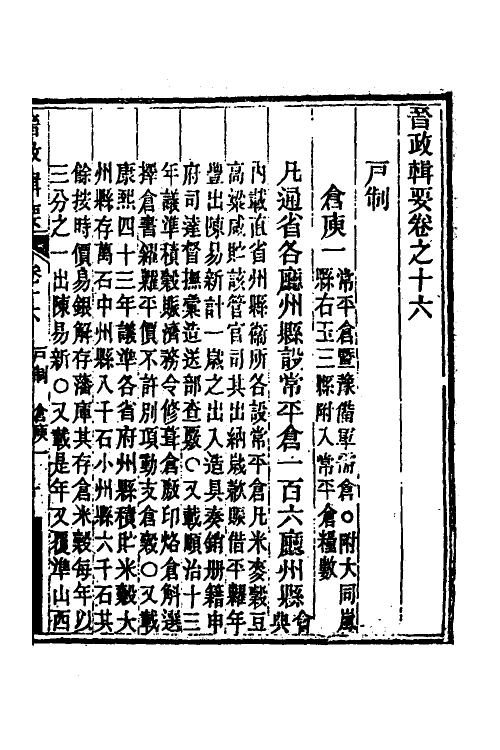 晉政輯要卷之十六
戸制
倉庾一
常平倉暨豫備軍需倉○附大同嵐
縣右玉三縣附入常平倉糧數
凡通省各廳州縣設常平倉一百六廳州縣會典
內載直省州縣衛所各設常平倉凡米麥穀豆
高粱咸貯該管官司其出納歲歉賑借平糶年
豐出陳易新計一歲之出入造具奏銷册籍申
府司達督撫彙造送部查覈○又載順治十三
年議準積穀賑濟務令修葺倉廒印烙倉斛選
擇倉書糴糶平價不許別項動支倉穀○又載
康熙四十三年議準各省府州縣積貯米穀大
州縣存萬石中州縣八千石小州縣六千石其
餘按時價易銀解存藩庫其存倉米穀每年以
三分之一出陳易新○又載是年又覆準山西
晉政輯要
卷十六
戸制
倉庾一
一